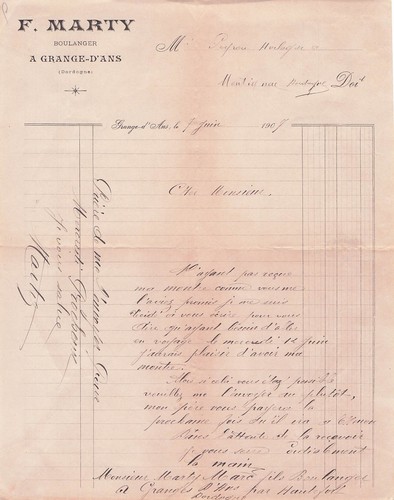 F. MARTY
BOULANGER
A GRANGE-D'ANS
(Dordogne)
M
Doit
Grange-d'Ans, le 7 Juin 1905
Cher Monsieur
N'ayant pas reçue
ma montre comme vous me
l'aviez promis je me suis
décidé à vous écrire pour vous
dire qu'ayant besoin d'aller
en voyage le mercredi 12 Juin
j'aurais plaisir d'avoir ma
montre.
Alors si cela vous était possible
veuillez me l'envoyer au plutôt,
mon père vous payera la
prochaine fois qu'il ira a
Dans l'attente de la recevoir
je vous serre cordialement
la main
Monsieur Marty Marc fils Boulanger
a Granges d'Ans par Hautefort
Dordogne
Prière de me l'envoyer
Mercredi Prochain
je vous salue
Marty